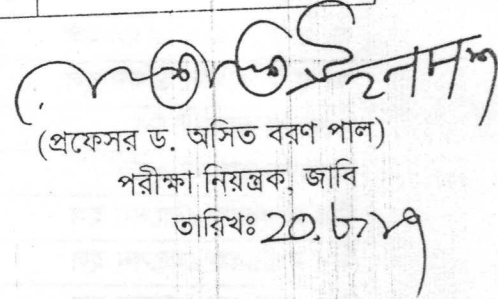 (প্রফেসর ড. অসিত বরণ পাল)
পরীক্ষা নিয়ন্ত্রক, জাবি
তারিখঃ